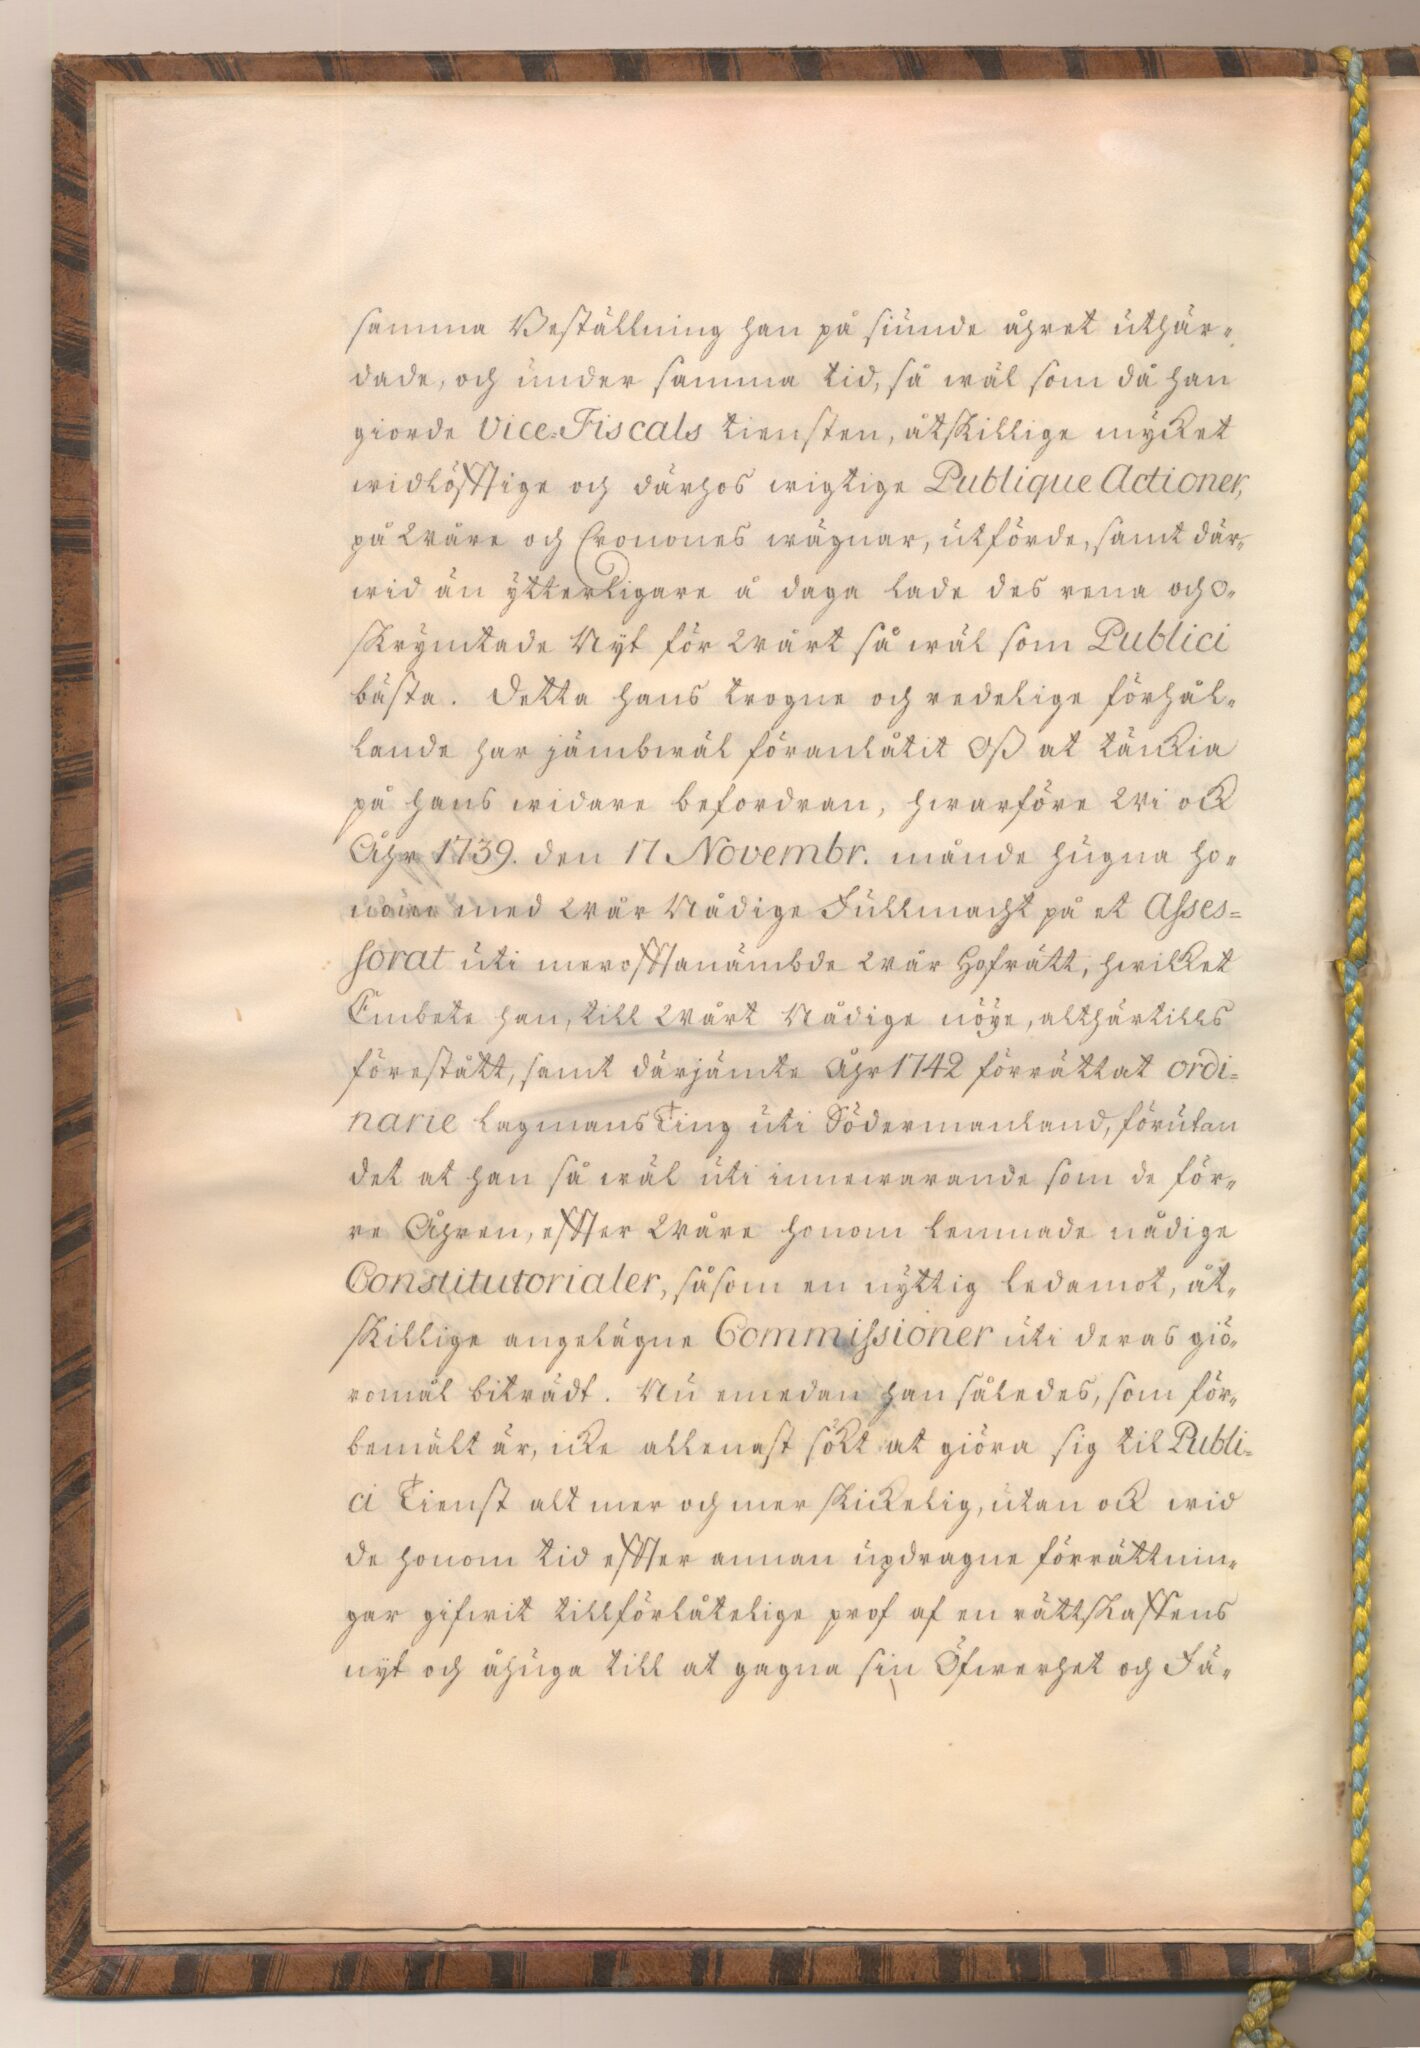 samma Beställning han på siunde åhret uthär-
dade, och under samma tid, så wäl som då han
giorde Vice-Fiscals tiensten, åtskillige mycket
widlöfftige och därhos wigtige Publique Actioner,
på Wåre och Cronones wägnar, utförde, samt där-
wid än ytterligare å daga lade des rena och o-
skrymtade Nyt för Wårt så wäl som Publici
bästa. Detta hans trogne och redelige förhål-
lande har jämbwäl föranlåtit Oß at tänckia
på hans widare befordran, hwarföre Wi ock
Åhr 1739. den 17 Novembr. månde hugna ho-
nom med Wår Nådige Fullmacht på et Asses-
sorat uti merofftanämbde Wår Hofrätt, hwilket
Embete han, till Wårt Nådige nöye, althärtills
förestått, samt därjämte Åhr 1742 förrättat ordi-
narie Lagmans Ting uti Södermanland, förutan
det at han så wäl uti innewarande som de för-
re Åhren, effter Wåre honom lemnade nådige
Constitutorialer, såsom en nyttig Ledamot, åt-
skillige angelägne Commissioner uti deras giö-
romål biträdt. Nu emedan han således, som för-
bemält är, icke allenast sökt at giöra sig til Publi-
ci Tienst alt mer och mer skickelig, utan ock wid
de honom tid effter annan updragne förrättnin-
gar gifwit tillförlåtelige prof af en rättskaffens
nyt och åhuga till at gagna sin Öfwerhet och Fä-